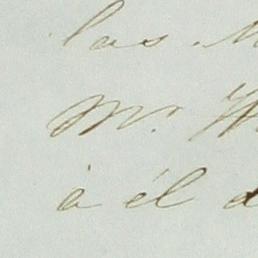 las
Mr.
à él